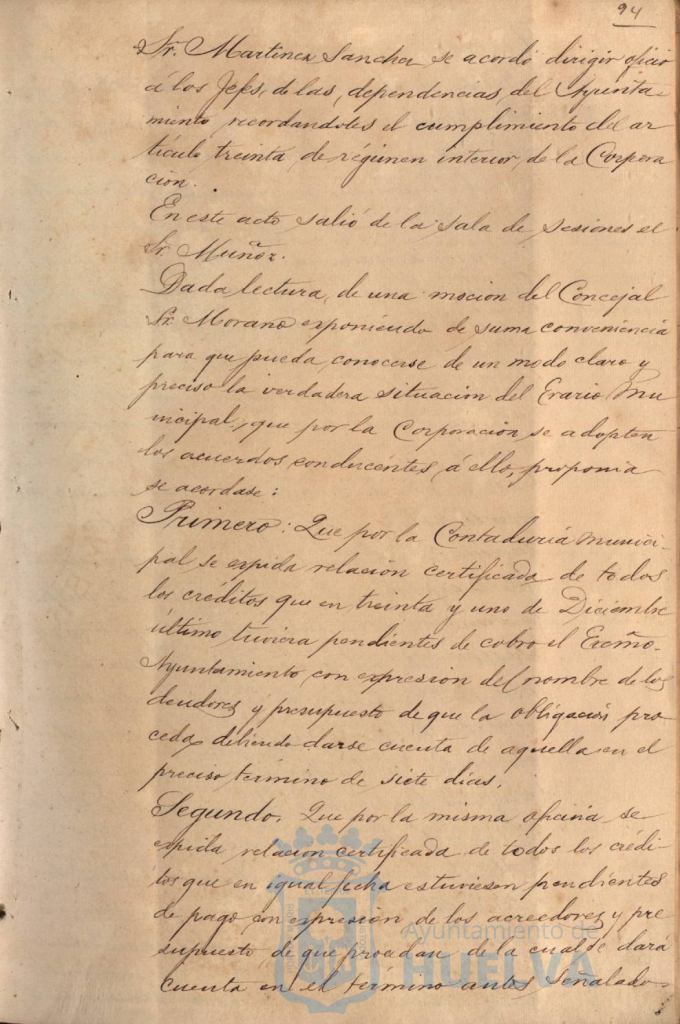 94
Sr. Martinez Sanchez se acordó dirigir oficio
á los Jefes, de las, dependencias, del Ayunta-
miento recordandoles el cumplimiento del ar
tículo treinta, de régimen interior, de la Corpora
ción.
En este acto salió de la sala de sesiones el
Sr. Muñoz.
Dada lectura, de una moción del Concejal
Sr. Morano exponiendo de suma conveniencia
para que pueda, conocerse de un modo claro y
preciso la verdadera situación del Erario Mu
nicipal, que por la Corporación se adopten
los acuerdos conducentes, á ello, proponia
se acordase:
Primero: Que por la Contaduría Munici-
pal se expida relación certificada de todos
los créditos que en treinta y uno de Diciembre
último tuviera pendientes de cobro el Excmo.
Ayuntamiento, con expresión del nombre de los
deudores y presupuesto de que la obligación pro
ceda, debiendo darse cuenta de aquella en el
preciso término de siete días.
Segundo. Que por la misma oficina se
expida relación certificada de todos los crédi-
tos que en igual fecha estuviesen pendientes
de pago, con expresión de los acreedores y pre
supuesto de que procedan de la cual se dará
cuenta en el término antes señalado
Ayuntamiento de
HUELVA